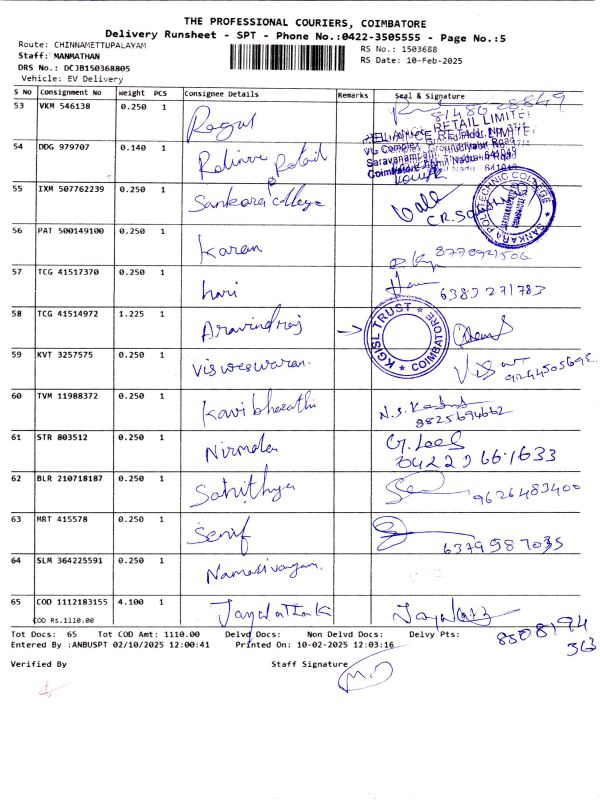 THE PROFESSIONAL COURIERS, COIMBATORE
Delivery Runsheet - SPT - Phone No.:0422-3505555 - Page No.:5
Route: CHINNAMETTUPALAYAM
RS No.: 1503688
Staff: MANMATHAN
RS Date: 10-Feb-2025
DRS No.: DCJB150368805
Vehicle: EV Delivery
S No Consignment No Weight PCS Consignee Details Remarks Seal & Signature
53 VKM 546138 0.250 1 Ragul
54 DDG 979707 0.140 1
RELIANCE RETAIL LIMITED
Saravanampatti
Coimbatore Tamil Nadu - 641049
55 IXM 507762239 0.250 1 Sankara college
SANKARA POLYTECHNIC COLLEGE
56 PAT 500149100 0.250 1 Karan
57 TCG 41517370 0.250 1 hari
58 TCG 41514972 1.225 1 Aravindraj
KGISL TRUST * COIMBATORE *
59 KVT 3257575 0.250 1 Visweswaran.
60 TVM 11988372 0.250 1 Kavibharathi
8825694662
61 STR 803512 0.250 1 Nirmala
0422 2661633
62 BLR 210718187 0.250 1 Sahithya 9626483400
63 MRT 415578 0.250 1
6379587035
64 SLM 364225591 0.250 1
65 COD 1112183155 4.100 1
COD Rs.1110.00
Tot Docs: 65 Tot COD Amt: 1110.00 Delvd Docs: Non Delvd Docs: Delvy Pts:
8508194
363
Entered By :ANBUSPT 02/10/2025 12:00:41 Printed On: 10-02-2025 12:03:16
Verified By Staff Signature